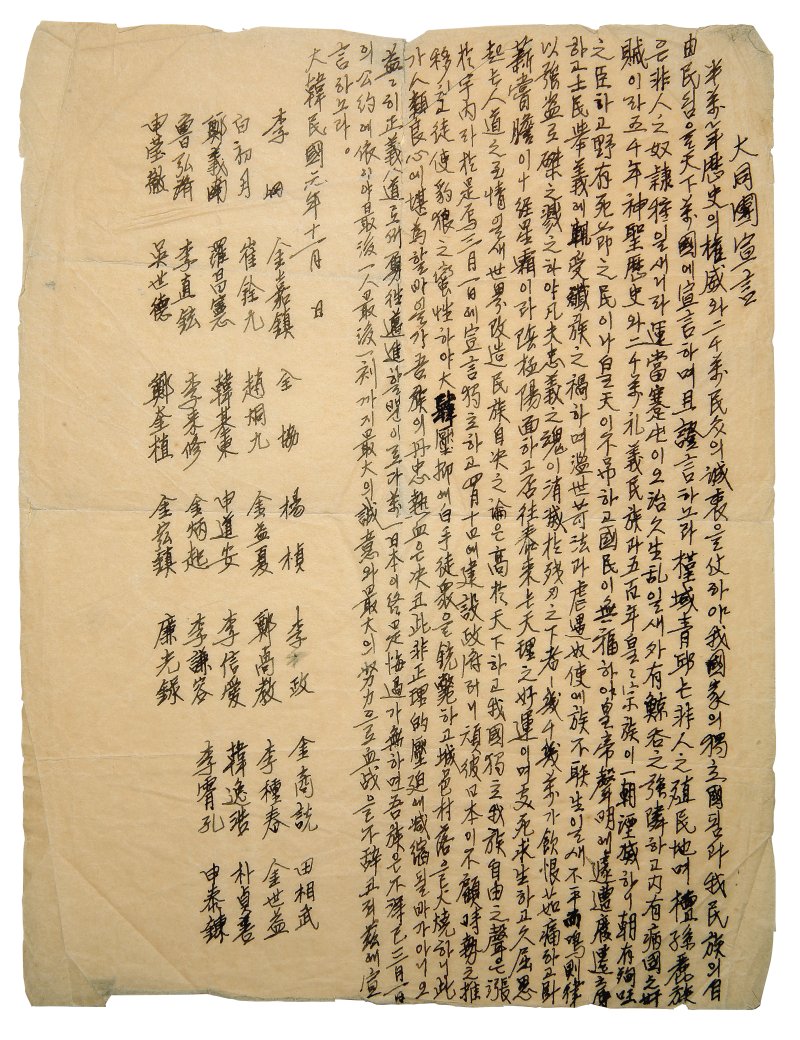 大同團宣言
半萬年歷史의 權威와 二千萬民衆의 誠衷을 仗하야 我國家의 獨立國됨과 我民族의 自
由民됨을 天下萬國에 宣言하며 且證言하노라 槿域靑邱는 非人之殖民地며 檀孫麗族
은 非人之奴隸種일새니라 運當蹇屯이오 治久生乱일새 外有鯨吞之強隣하고 內有病國之奸
賊이라 五千年神聖歷史와 二千萬礼義民族과 五百年皇皇宗族이 一朝湮滅하니 朝有殉
之臣하고 野有死節之民이나 皇天이 不吊하고 國民이 無福하야 皇帝聲明에 遽遭廢遷之辱
하고 士民擧義에 輒受殲族之禍하며 濫世苛法과 虐遇奴使에 族不聊生일새 不平而鳴則律
以強盜로 磔之戮之하야 凡夫忠義之魂이 消滅於残刃之下者ㅣ 幾千幾萬가 飮恨茹痛하고 臥
薪嘗膽이 十経星霜이라 陰極陽面하고 否往泰来는 天理之好運이며 支死求生하고 久屈思
起는 人道之至情일새 世界改造民族自决之論은 高於天下하고 我國獨立我族自由之聲은 漲
於宇內라 於是焉三月一日에 宣言獨立하고 四月十日에 建設政府러니 頑彼日本이 不顧時勢之推
移하고 徒使豹狼之蠻性하야 大肆壓抑에 白手徒衆을 銃斃하고 城邑村落을 火燒하니 此
가 人類良心에 堪爲할 바일가 吾族의 丹忠熱血은 决코 此非正理的壓迫에 减縮될 바가 아니오
益益히 正義人道로써 勇往邁進할 뿐이로다 萬一日本이 終是悔過가 無하면 吾族은 不得已 三月一日
의 公約에 依하야 最後一人最後一刻까지 最大의 誠意와 最大의 努力으로 血戰을 不辭코저 玆에 宣
言하노라。
大韓民國元年十一月 日
李 堈 金嘉鎮 全 協 楊 楨 李 政 金商說 田相武
白初月 崔銓九 趙炯九 金益夏 鄭高教 李種春 金世益
鄭義南 羅昌憲 韓基東 申道安 李信愛 韓逸浩 朴貞善
魯弘濟 李直鉉 李来修 金炳起 李謙容 李霄孔 申泰鍊
申瑩徹 吳世德 鄭奎植 金宏鎮 廉光錄